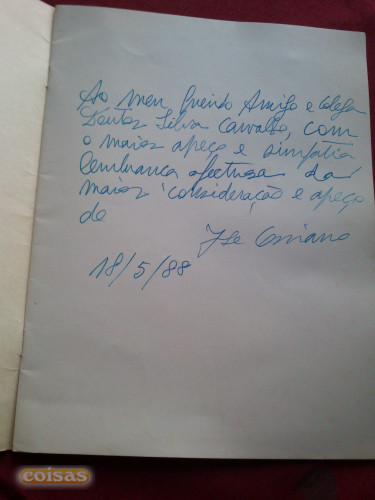 Ao meu querido Amigo e colega
Santos Silva Carvalho, com
o maior apeço e simpatia
lembrança afectuosa da
maior consideração e apeço
de
18/5/88
coisas